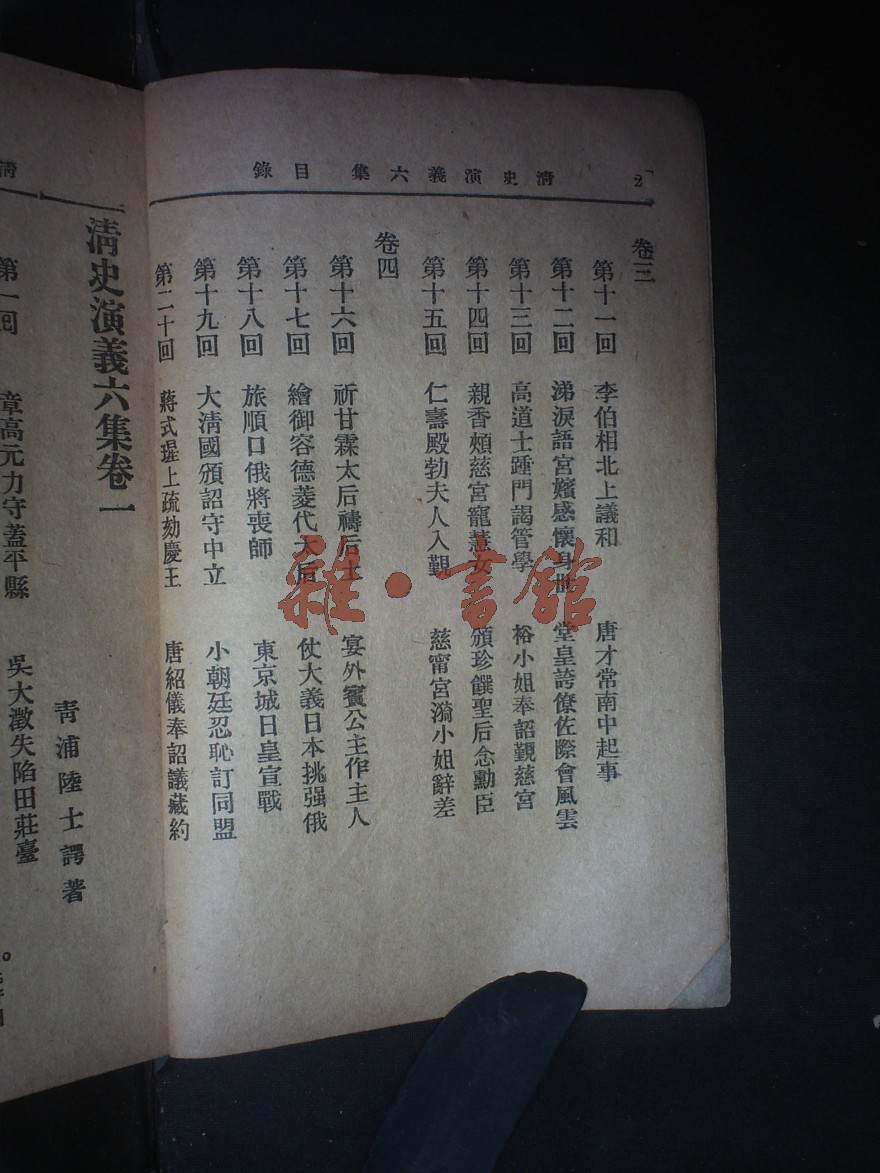 清史演義六集 目錄
2
卷三
第十一回 李伯相北上議和 唐才常南中起事
第十二回 涕淚語宮嬪感懷身世 堂皇誇僚佐際會風雲
第十三回 高道士踵門謁管學 裕小姐奉詔覲慈宮
第十四回 親香頰慈宮寵慧女 頒珍饌聖后念勳臣
第十五回 仁壽殿勃夫人入覲 慈甯宮漪小姐辭差
卷四
第十六回 祈甘霖太后禱后土 宴外賓公主作主人
第十七回 繪御容德菱代太后 仗大義日本挑强俄
第十八回 旅順口俄將喪師 東京城日皇宣戰
第十九回 大清國頒詔守中立 小朝廷忍恥訂同盟
第二十回 蔣式瑆上疏劾慶王 唐紹儀奉詔議藏約
清
清史演義六集卷一
青浦陸士諤著
第一回 章高元力守蓋平縣 吳大澂失陷田莊臺
雜·書館